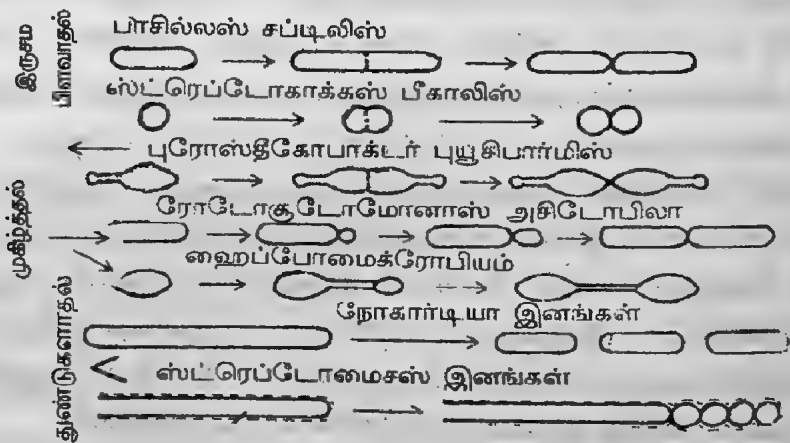 இருசம பிளவாதல்
பாசில்லஸ் சப்டிலிஸ்
ஸ்ட்ரெப்டோகாக்கஸ் பீகாலிஸ்
புரோஸ்தீகோபாக்டர் புயூசிபார்மிஸ்
முகிழ்த்தல்
ரோடோசூடோமோனாஸ் அசிடோபிலா
ஹைப்போமைக்ரோபியம்
துண்டுகளாதல்
நோகார்டியா இனங்கள்
ஸ்ட்ரெப்டோமைசஸ் இனங்கள்